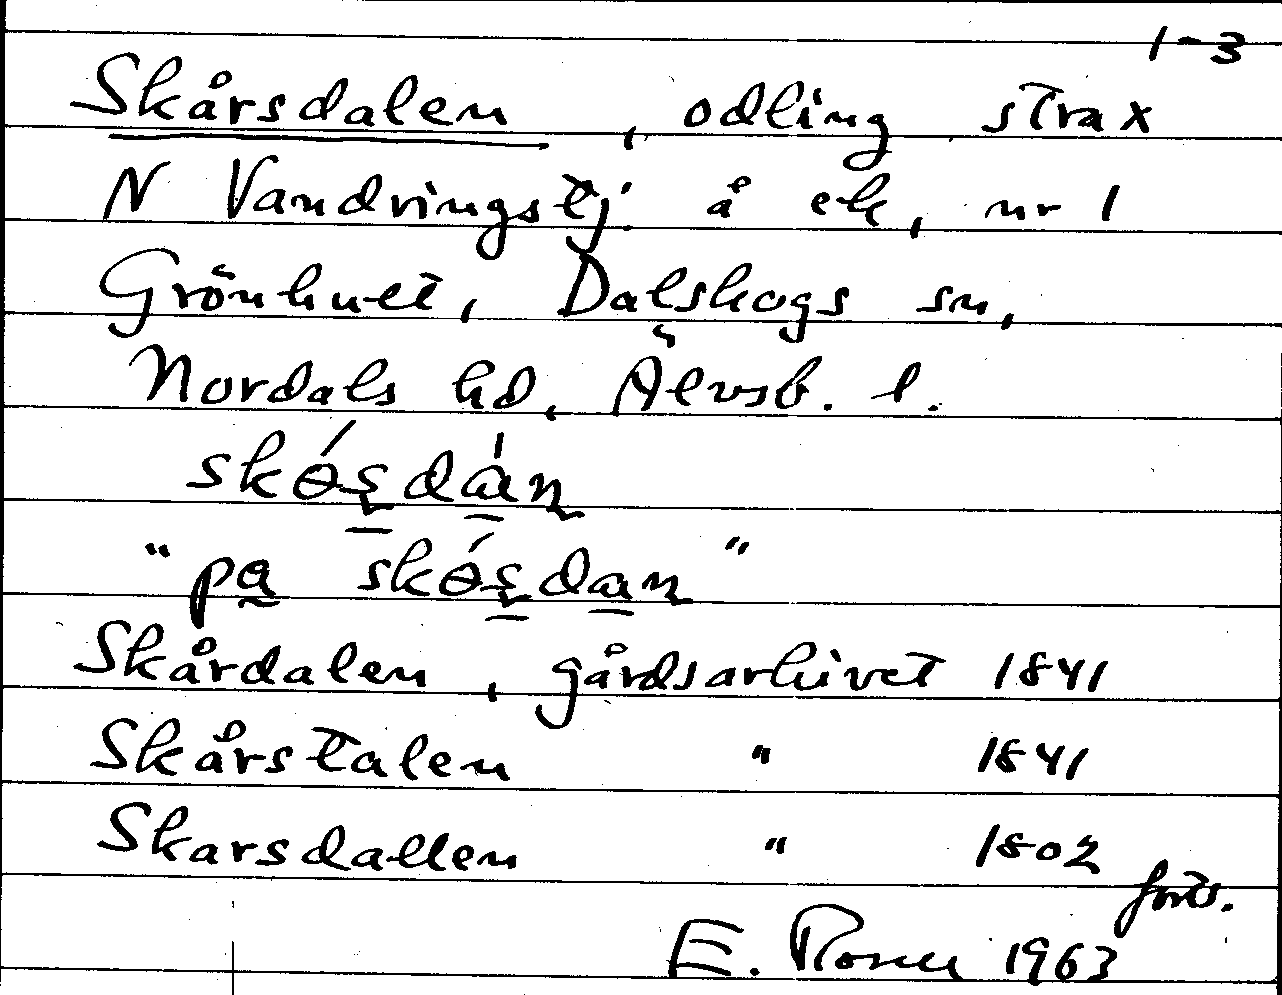 1-3
Skårsdalen, odling strax
N Vandringstj. å ek, nr 1
Grönhult, Dalskogs sn,
Nordals hd, Älvsb. l.
skɵ́ʂdàɳ
"pa skɵ́ʂdaɳ"
Skårdalen, gårdsarkivet 1841
Skårstalen " 1841
Skarsdallen " 1802
forts.
E. 1963